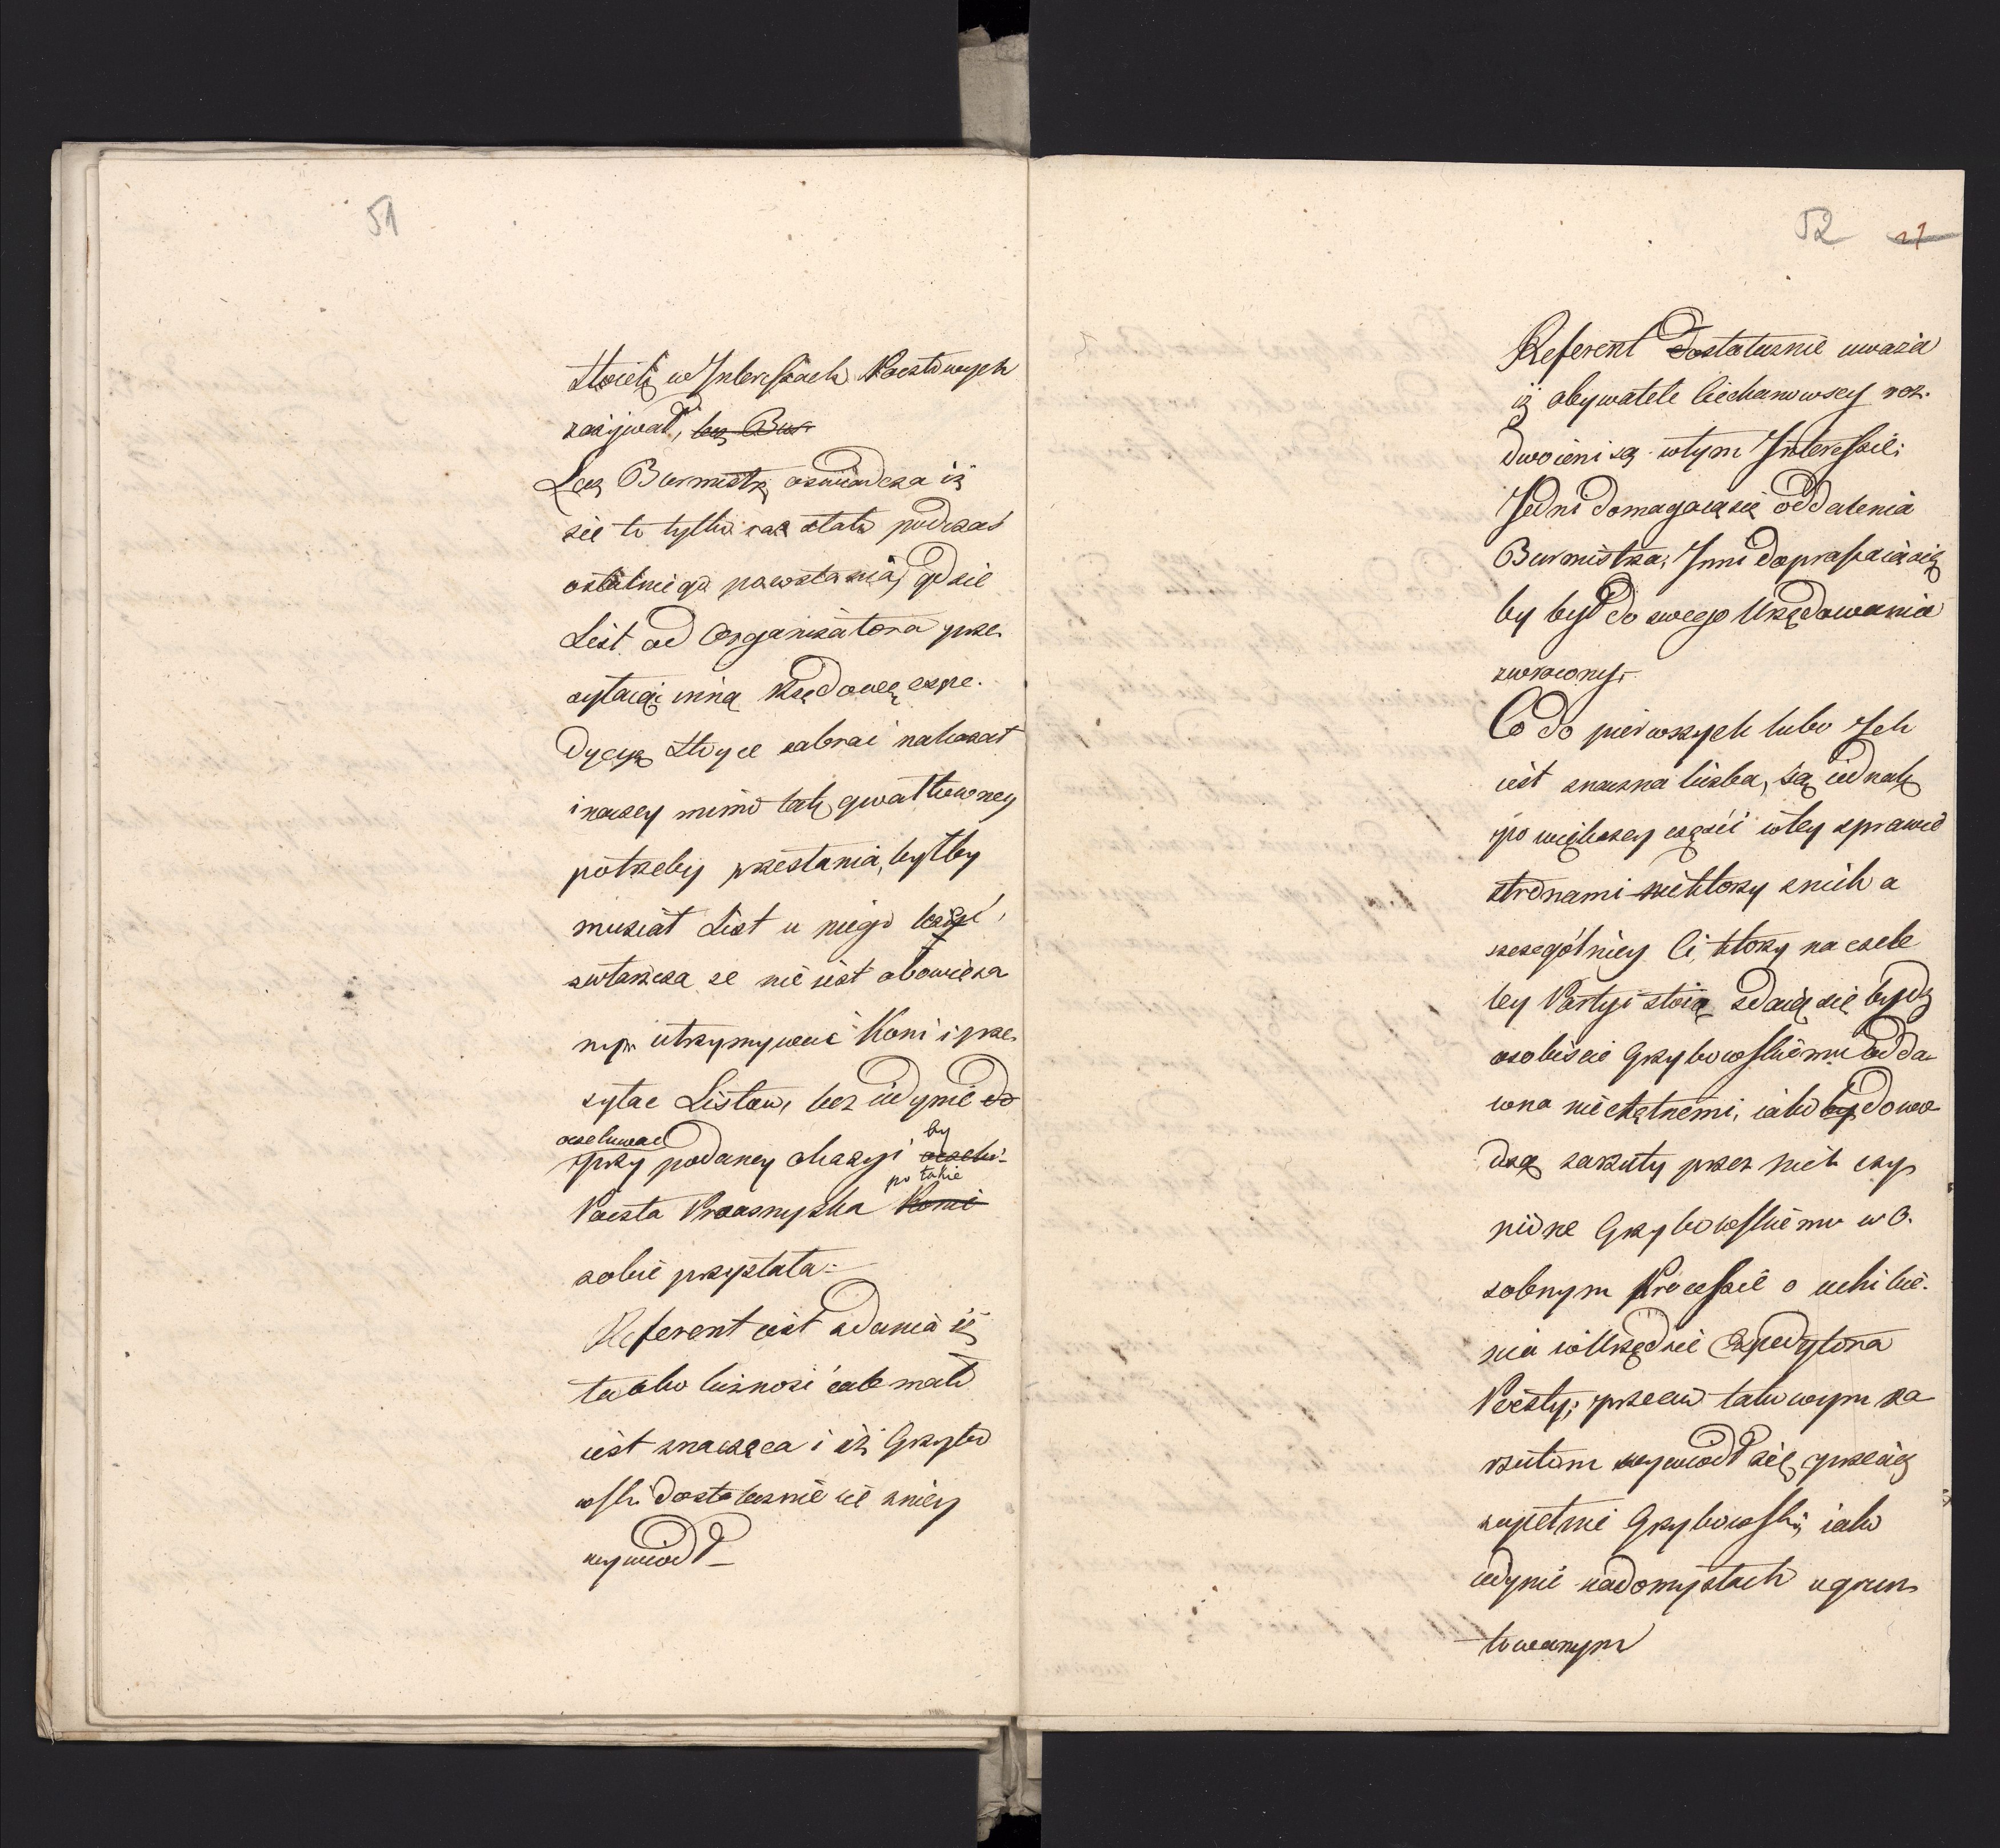 51
ktoich w Interessach Pocztowych
zażywał, lecz Bur-
Lecz Burmistrz oswiadcza iż
się to tylko raz stało podczas
ostatniego powstania, gdzie
List od Organizatora prze
syłaiąc inną Rządową expe-
dycyą ktoś ie zabrać nakazał
inaczey mimo tak gwałtowney
potrzeby przesłania, byłby
musiał List u niego leżeć,
zwłaszcza ze nie iest obowięza
nym utrzymywać Koni i prze
syłac Listow, lecz iedynie do
oczekiwać by
przy podaney okazyi oczeki-
po takie
Poczta Praasnyszka Konie
sobie przysłała-
Referent iest zdania iż
ta okoliczność iako mało
iest znacząca i iż Grzybo
wski dostatecznie się zniey
wywiodł-
52 27
Referent dostatecznie uważa
iż obywatele Ciechanowscy roz-
dwoieni są wtym Interessie;
Jedni domagaią się oddalenia
Burmistrza; Inni dopraszaią się
by był do swego Urzędowania
zwrocony.
Co do pierwszych lubo Ich
iest znaczna liczba, są iednak
po większey części wtey sprawie
stronami niektorzy znich a
szczególniey Ci, ktorzy na czele
tey Partyi stoią zdaią się bydz
osobiście Grzybowskiemu odda-
wna niechętnemi, iako by dowo
dzą zarzuty przez nich czy
nione Grzybowskiemu w o-
sobnym Processie o uchibie-
nia w Urzędzie Expedytora
Poczty; przeciw takowym za
rzutom wywiodł się przecież
zupełnie Grzybowski, iako
iedynie nadomysłach ugrun
towanym